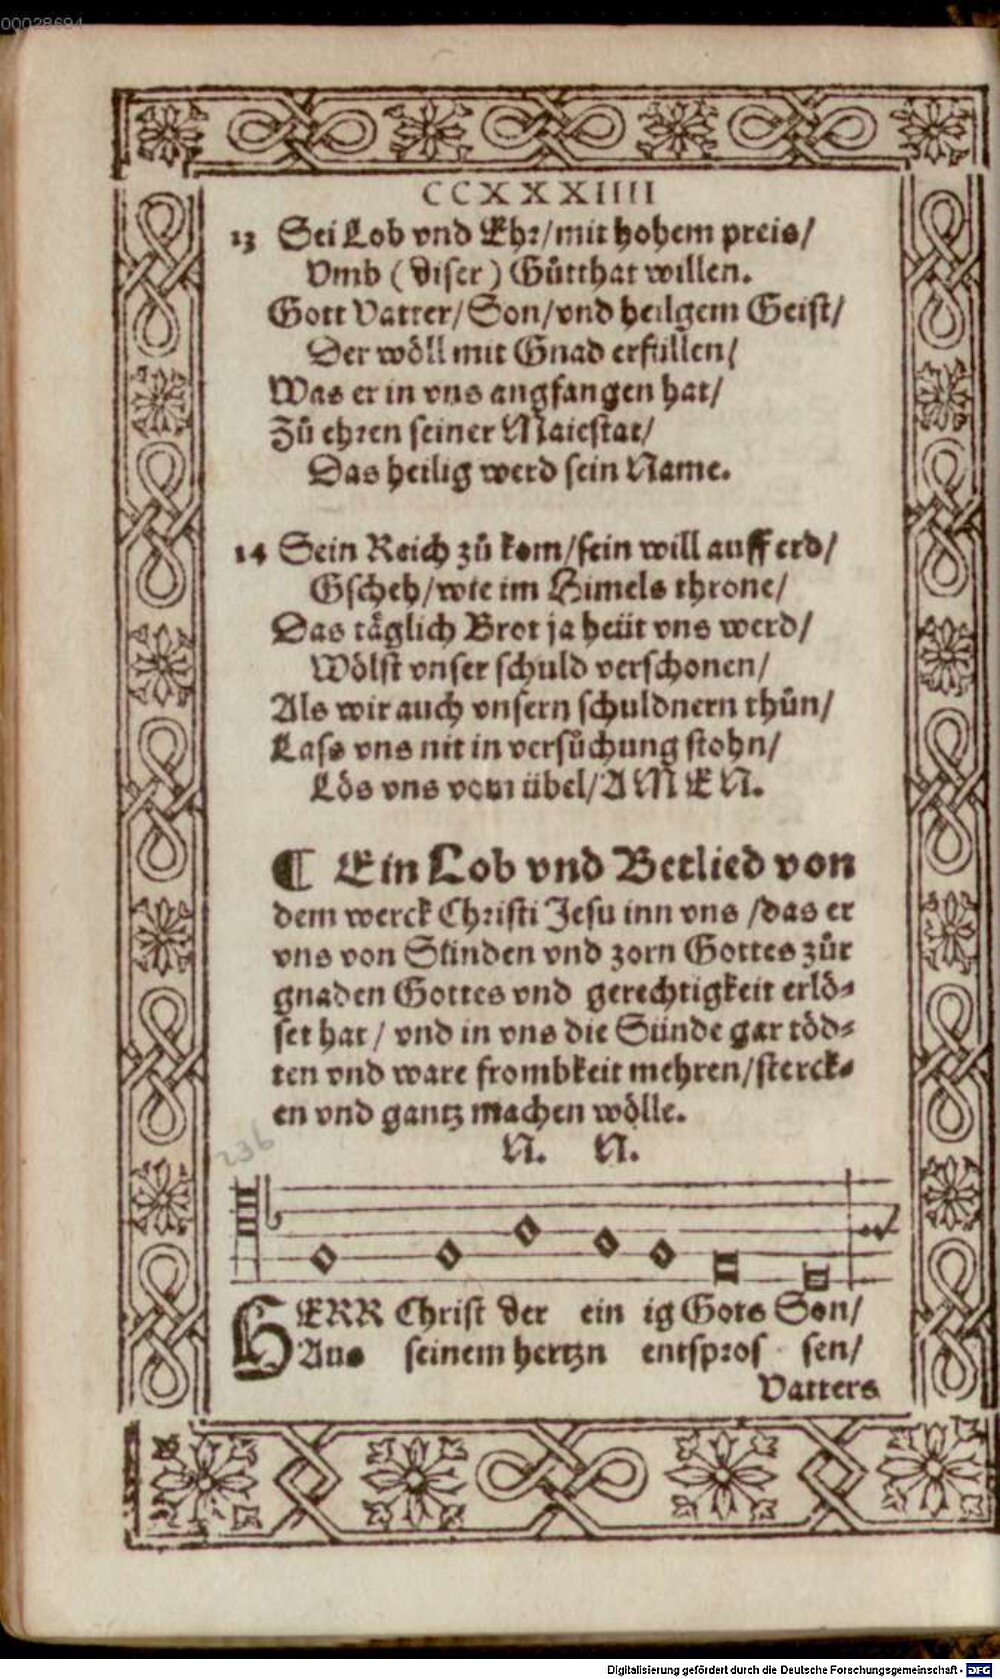 00028694
CCXXXIIII
13 Sei Lob vnd Ehr/mit hohem preis/
Vmb (diser) Gůtthat willen.
Gott Vatter/Son/vnd heilgem Geist/
Der wöll mit Gnad erfüllen/
Was er in vns angfangen hat/
Zů ehren seiner Maiestat/
Das heilig werd sein Name.
14 Sein Reich zů kom/sein will auff erd/
Gscheh/wie im Himels throne/
Das täglich Brot ja heüt vns werd/
Wölst vnser schuld verschonen/
Als wir auch vnsern schuldnern thůn/
Lass vns nit in versůchung stohn/
Lös vns vom übel/AMEN.
¶ Ein Lob vnd Betlied von
dem werck Christi Jesu inn vns /das er
vns von Sünden vnd zorn Gottes zůr
gnaden Gottes vnd gerechtigkeit erlö-
set hat / vnd in vns die Sünde gar töd-
ten vnd ware frombkeit mehren/sterck-
en vnd gantz machen wölle.
N. N.
236
HERR Christ der ein ig Gots Son/
Aus seinem hertzn entspros sen/
Vatters
Digitalisierung gefördert durch die Deutsche Forschungsgemeinschaft - DFG